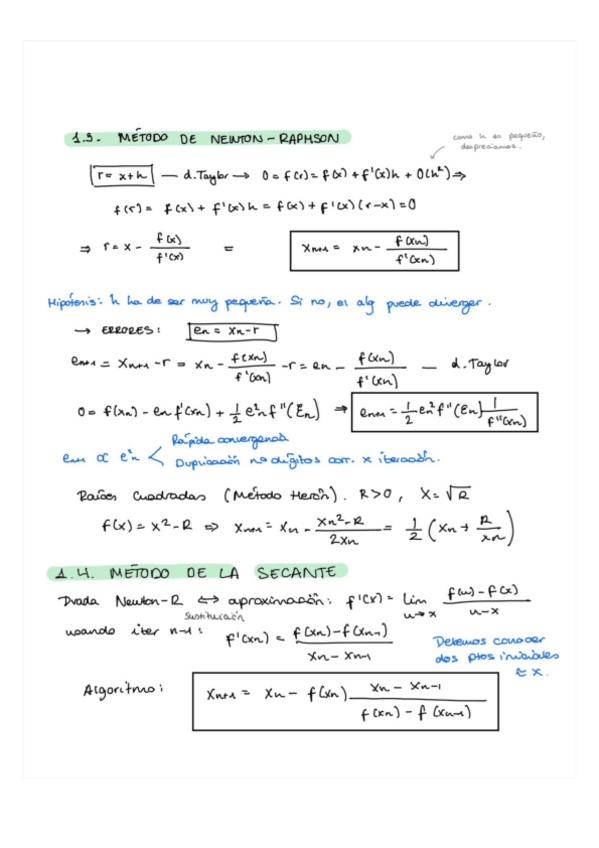 1.3. MÉTODO DE NEWTON-RAPHSON
como h es pequeño,
despreciamos.
r = x+h — d.Taylor → 0 = f(r) = f(x) + f'(x)h + O(h²) ⇒
f(r) = f(x) + f'(x)h = f(x) + f'(x)(r-x) = 0
⇒ r = x - f(x)/f'(x) = xn+1 = xn - f(xn)/f'(xn)
Hipótesis: h ha de ser muy pequeña. Si no, el alg puede diverger.
→ ERRORES: en = xn - r
en+1 = xn+1 - r = xn - f(xn)/f'(xn) - r = en - f(xn)/f'(xn) — d.Taylor
0 = f(xn) - en f'(xn) + 1/2 e²n f''(ξn) ⇒ en+1 = 1/2 en² f''(ξn) 1/f''(xn)
Rápida convergencia
en+1 ∝ e²n <
Duplicación nº dígitos corr. x iteración.
Raíces Cuadradas (Método Herón). R>0, X=√R
f(x) = x² - R ⇒ xn+1 = xn - xn²-R/2xn = 1/2 (xn + R/xn)
1.4. MÉTODO DE LA SECANTE
Newton-R ↔ aproximación: f'(x) = lím u→x f(u)-f(x)/u-x
sustitución
usando iter n-1: f'(xn) = f(xn)-f(xn-1)/xn-xn-1
Debemos conocer
dos ptos iniciales
≈ x.
Algoritmo: xn+1 = xn - f(xn) xn-xn-1/f(xn)-f(xn-1)